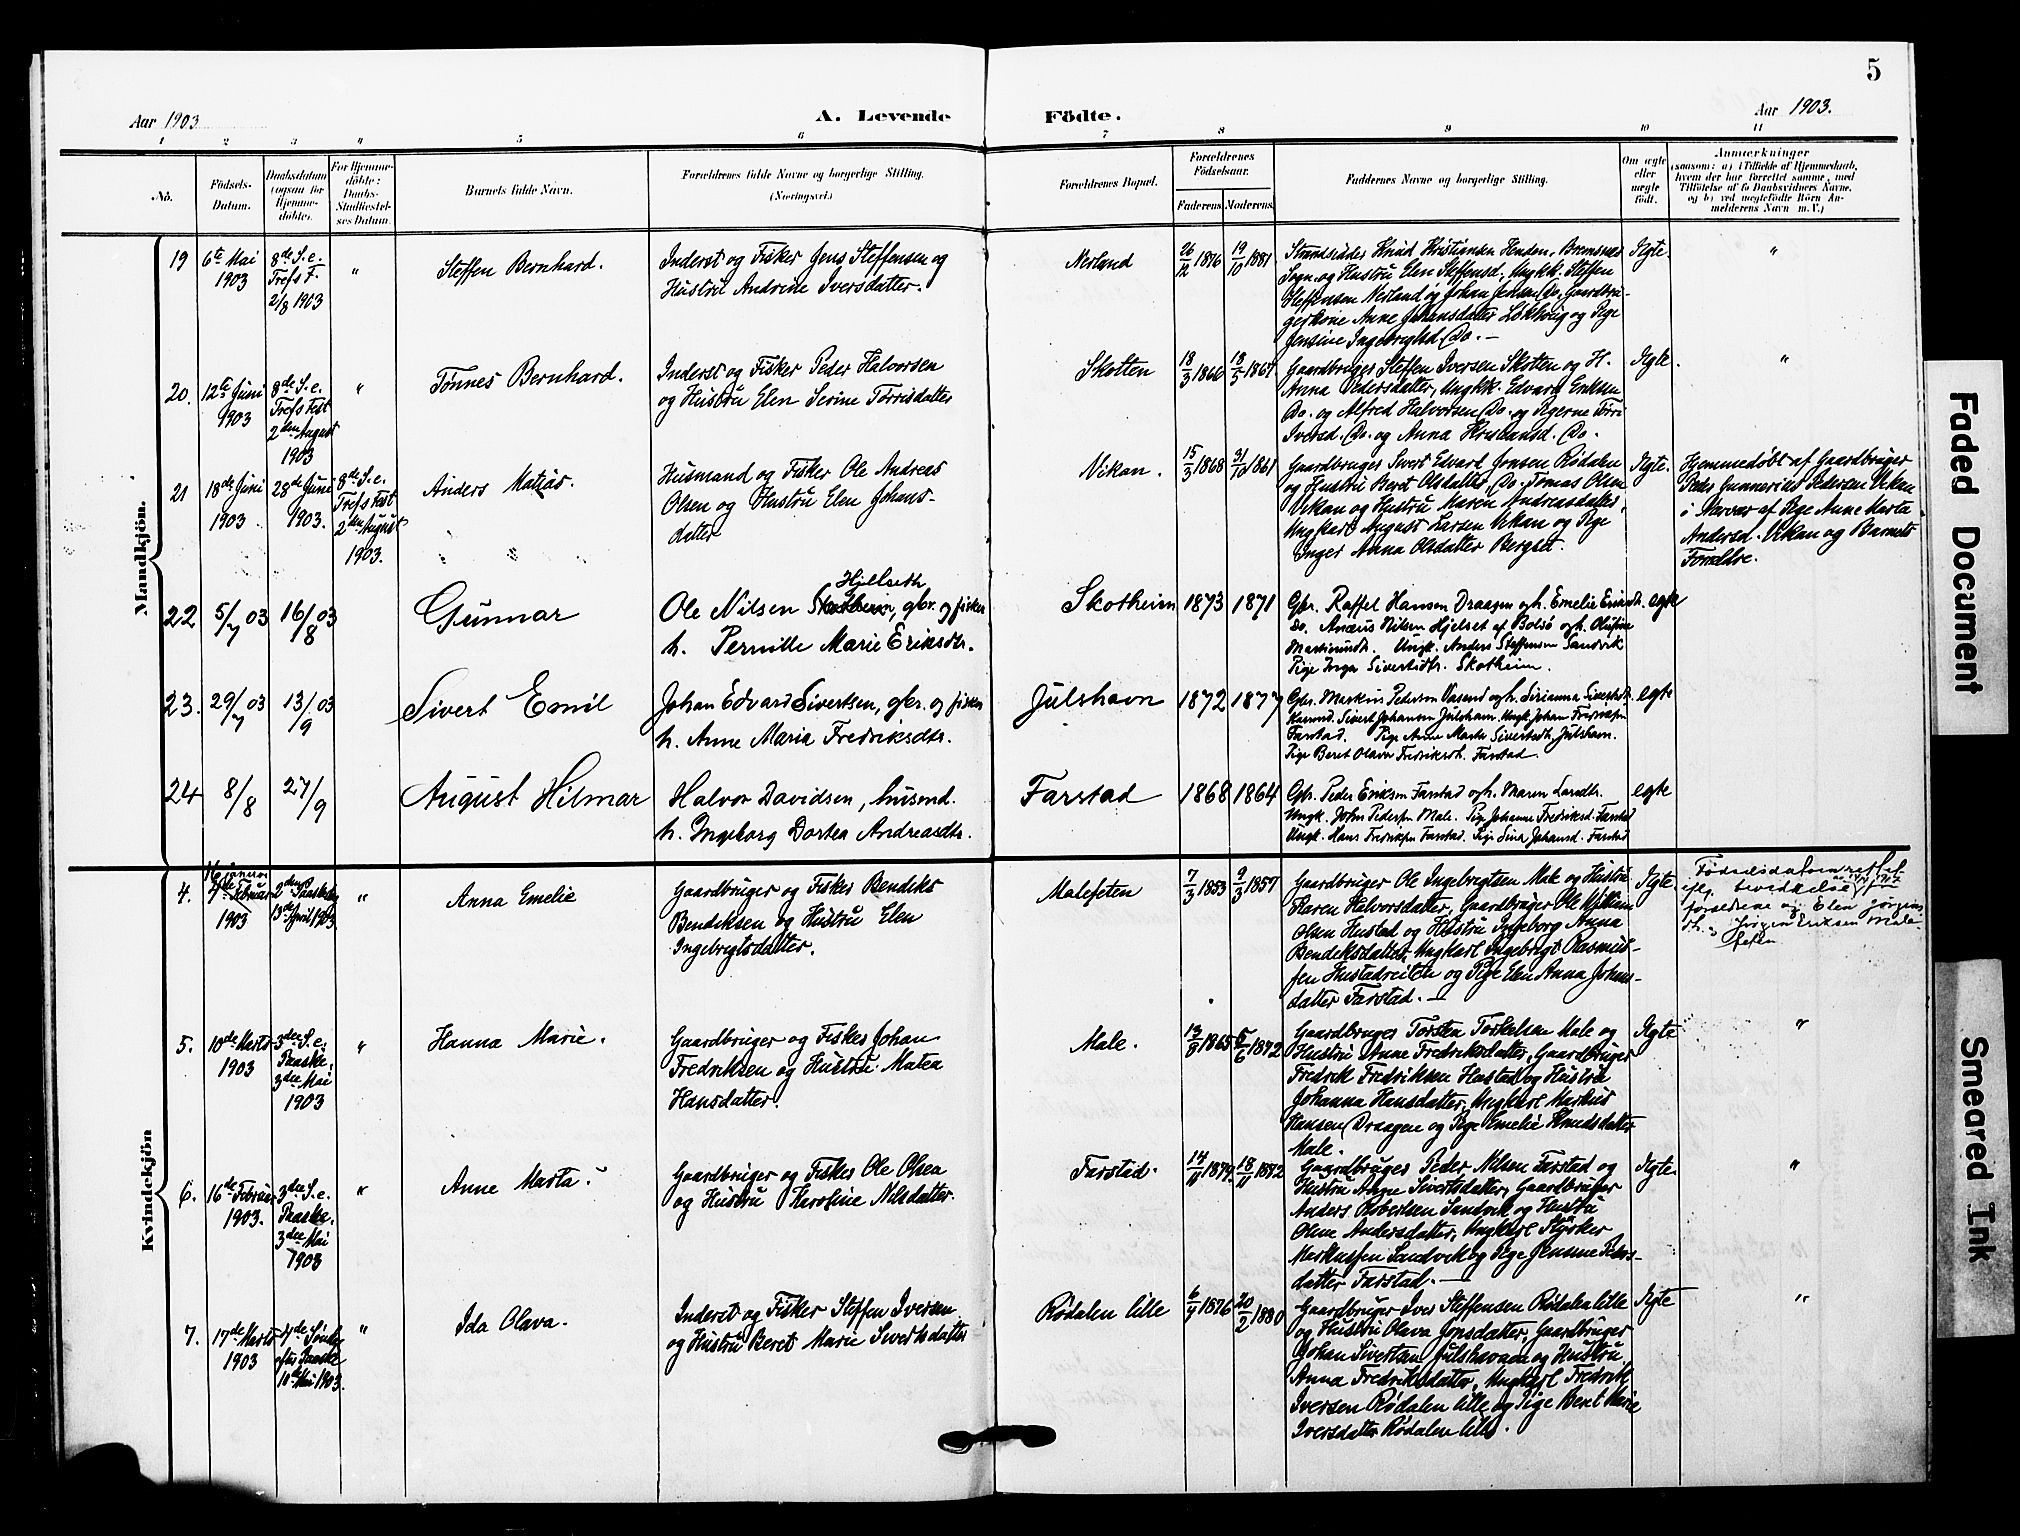 5
Aar 1903
A. Levende
Födte.
Aar 1903.
1 2 3 4 5 6 7 8 9 10 11
No.
Födsels-
Datum.
Daabsdatum
(ogsaa for
Hjemme-
döbte).
For Hjemme-
döbte:
Daabs-
Stadfæstel-
ses Datum.
Barnets fulde Navn.
Forældrenes fulde Navne og borgerlige Stilling.
(Næringsvei.)
Forældrenes Bopæl.
Forældrenes
Födselsaar.
Faderens.
Moderens.
Faddernes Navne og borgerlige Stilling.
Om ægte
eller
uægte
födt.
Anmærkninger
(saasom: a) i Tilfælde af Hjemmedaab,
hvem der har forrettet samme, med
Tilföielse af to Daabsvidners Navne,
og b) ved uægtefödte Börn An-
melderens Navn m. V.)
Mandkjön.
19
6te Mai
1903
8de S. e.
Trefs F.
2/8 1903
"
Steffen Bernhard.
Inderst og Fisker Jens Steffensen og
Hustru Andrine Iversdatter.
Nerland
26/12 1876
19/10 1881
Strandsidder Knud Kristiansen Henden, Bremsnes
Sogn og Hustru Elen Steffensd., Ungk. Steffen
Steffensen Nerland og Johan Jensen Do, Gaardbru-
gerkone Anne Johansdatter Løkhaug og Pige
Jensine Ingebrigtsd. Do. —
Ægte.
"
20.
12te Juni
1903
8de S. e.
Trefs Fest
2den August
1903
"
Tønnes Bernhard.
Inderst og Fisker Peder Halvorsen
og Hustru Elen Serine Torrisdatter
Skotten
18/3 1866
18/5 1867
Gaardbruger Steffen Iversen Skotten og H.
Anna Pedersdatter, Ungkk. Edvard Eriksen
Do. og Alfred Halvorsen Do. og Pigerne Torri
Iversd. Do. og Anna Kristiansd. Do.
Ægte.
"
21
18de Juni
1903
28de Juni
1903.
8de S. e.
Trefs Fest
2den August
1903.
Anders Matias.
" "
Husmand og Fisker Ole Andreas
Olsen og Hustru Elen Johans-
datter
Vikan.
15/3 1868
31/10 1861
Gaardbruger Sivert Edvard Jonsen Rødalen
og Hustru Beret Olsdatter Do. Tomas Olsen
Vikan og Hustru Maren Andreasdatter,
Ungkarl August Larsen Vikan og Pige
Inger Anna Olsdatter Bergset.
Ægte.
Hjemmedøbt af Gaardbruger
Peder Gunnerius Pedersen Vikan
i Nærvær af Pige Anne Marta
Andersd. Vikan og Barnets
Forældre.
22
5/7 03
16/8 03
Gunnar
Hjelseth
Ole Nilsen Skotheim, gbr. og fisker
h. Pernille Marie Eriksdtr.
Skotheim
1873
1871
Gbr. Raffel Hansen Draagen og h. Emelie Eriksdtr.
Do. Anæus Nilsen Hjelset af Bolsø og h. Olufine
Martinusdtr. Ungk. Anders Steffensen Sandvik
Pige Inga Sivertsdtr. Skotheim.
egte
23.
29/7 03
13/9 03
Sivert Emil
Johan Edvard Sivertsen, gbr. og fisker
h. Anne Maria Fredriksdtr.
Julshavn
1872
1877
Gbr. Markus Pedersen Vasend og h. Sirianna Sivertsdtr.
Husmd. Sivert Johansen Julshavn. Ungk. Johan Fredriksen
Farstad. Pige Anne Marta Sivertsdtr. Julshavn.
Pige Beret Olava Fredriksdtr. Farstad.
egte
24
8/8
27/9
August Hilmar
Halvor Davidsen, husmd.
h. Ingeborg Dortea Andreasdtr.
Farstad
1868
1864
Gbr. Peder Eriksen Farstad og h. Maren Larsdtr.
Ungk. John Pedersen Male. Pige Johanne Fredriksd. Farstad
Ungk. Hans Fredriksen Farstad. Pige Sina Johansd. Farstad
egte
Kvindekjön
4.
16 januar
4de Februar
1903
2den Paaskedag
13de April 1903.
"
Anna Emelie
Gaardbruger og Fisker Bendiks
Bendiksen og Hustru Elen
Ingebrigtsdatter.
Malefeten
7/3 1853
9/3 1857
Gaardbruger Ole Ingebrigtsen Male og Hustru
Karen Halvorsdatter, Gaardbruger Ole Wikum
Olsen Hustad og Hustru Ingeborg Anna
Bendiksdatter, Ungkarl Ingebrigt Rasmus-
sen Hustadreiten og Pige Elen Anna Johans-
datter Farstad. —
Ægte.
Fødselsdatum rettet
forældrene og Elen Jørgens
dtr. og Jørgen Eriksen Male-
feten
5.
10de Marts
1903
3die S. e.
Paaske.
3die Mai
1903
"
Hanna Marie.
Gaardbruger og Fisker Johan
Fredriksen og Hustru Matea
Hansdatter.
Male.
13/8 1865
5/6 1872
Gaardbruger Torsten Torkelsen Male og
Hustru Anne Fredriksdatter, Gaardbruger
Fredrik Fredriksen Hustad og Hustru
Johanna Hansdatter, Ungkarl Markus
Hansen Draagen og Pige Emelie Knudsdatter
Male.
Ægte
"
6.
16de Februar
1903.
3die S. e.
Paaske.
3die Mai
1903
"
Anne Marta.
Gaardbruger og Fisker Ole Olsen
og Hustru Karoline Nilsdatter.
Farstad.
14/11 1879
18/11 1872
Gaardbruger Peder Nilsen Farstad og
Hustru Anne Sivertsdatter, Gaardbruger
Anders Robertsen Sandvik og Hustru
Oline Andersdatter, Ungkarl Styrker
Markussen Sandvik og Pige Jensine Peders-
datter Farstad. —
Ægte.
"
7.
17de Marts
1903
4de Søndag
efter Paaske
10de Mai 1903.
"
Ida Olava.
Inderst og Fisker Steffen Iversen
og Hustru Beret Marie Sivertsdatter
Rødalen lille
6/7 1876
20/2 1880
Gaardbruger Iver Steffensen Rødalen lille
og Hustru Olava Jonsdatter, Gaardbruger
Johan Sivertsen Julshavn og Hustru
Anna Fredriksdatter, Ungkarl Fredrik
Iversen Rødalen lille og Pige Beret Marie
Iversdatter Rødalen lille.
Ægte
"
Faded Document
Smeared Ink